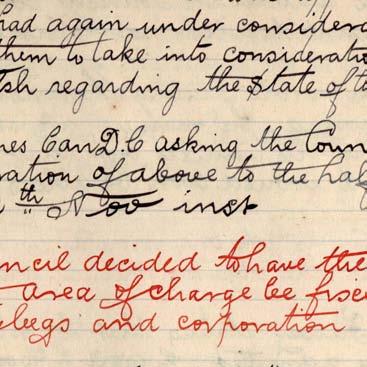 had again under considera
them to take into consideratio
sh regarding the State of t
nes Can D.C asking the Coun
ration of above to the hal
th " Nov inst
ncil decided to have the
area of charge be fixe
ebegs and corporation